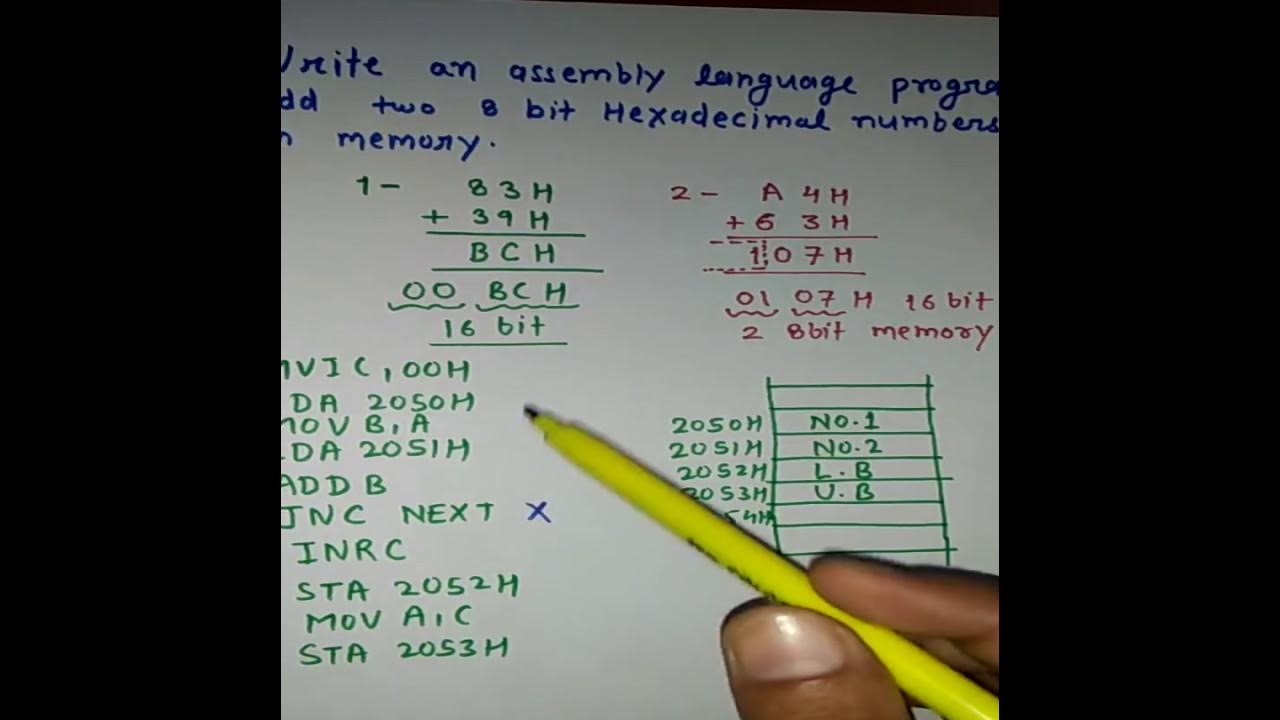 Write an assembly language progra
dd two 8 bit Hexadecimal numbers
n memory.
1- 83H
+ 39H
BCH
00 BCH
16 bit
2- A4H
+ 63H
107H
01 07H 16 bit
2 8bit memory
MVI C, 00H
LDA 2050H
MOV B, A
LDA 2051H
ADD B
JNC NEXT X
INRC
STA 2052H
MOV A, C
STA 2053H
2050H NO.1
2051H NO.2
2052H L.B
2053H U.B
54H